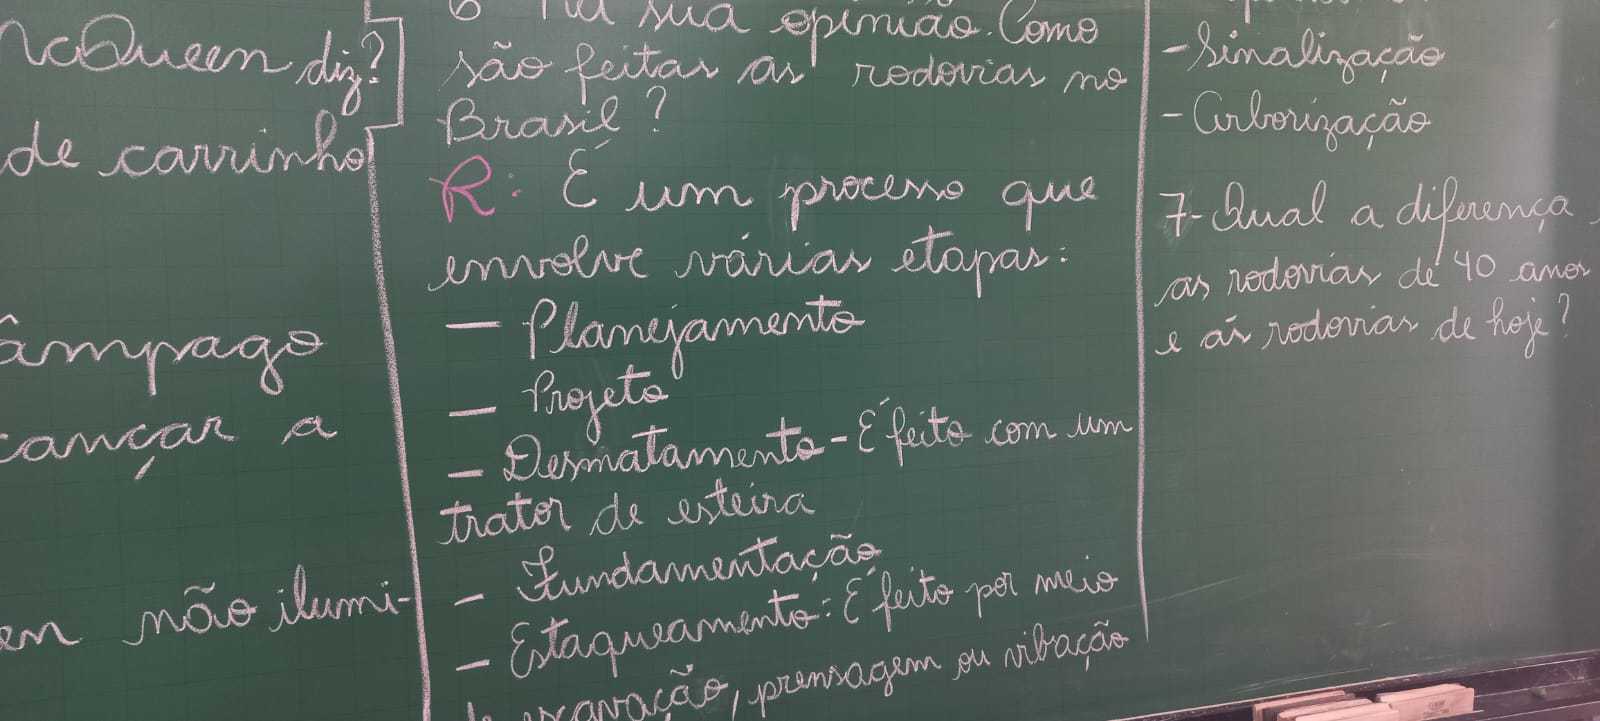 McQueen diz?
de carrinho
âmpago
cançar a
en não ilumi-
6 Na sua opinião. Como
são feitas as rodovias no
Brasil?
R: É um processo que
envolve várias etapas:
— Planejamento
— Projeto
— Desmatamento - É feito com um
trator de esteira
— Fundamentação
— Estaqueamento: É feito por meio
de escavação, prensagem ou vibração
- Sinalização
- Arborização
7- Qual a diferença
as rodovias de 40 anos
e as rodovias de hoje?